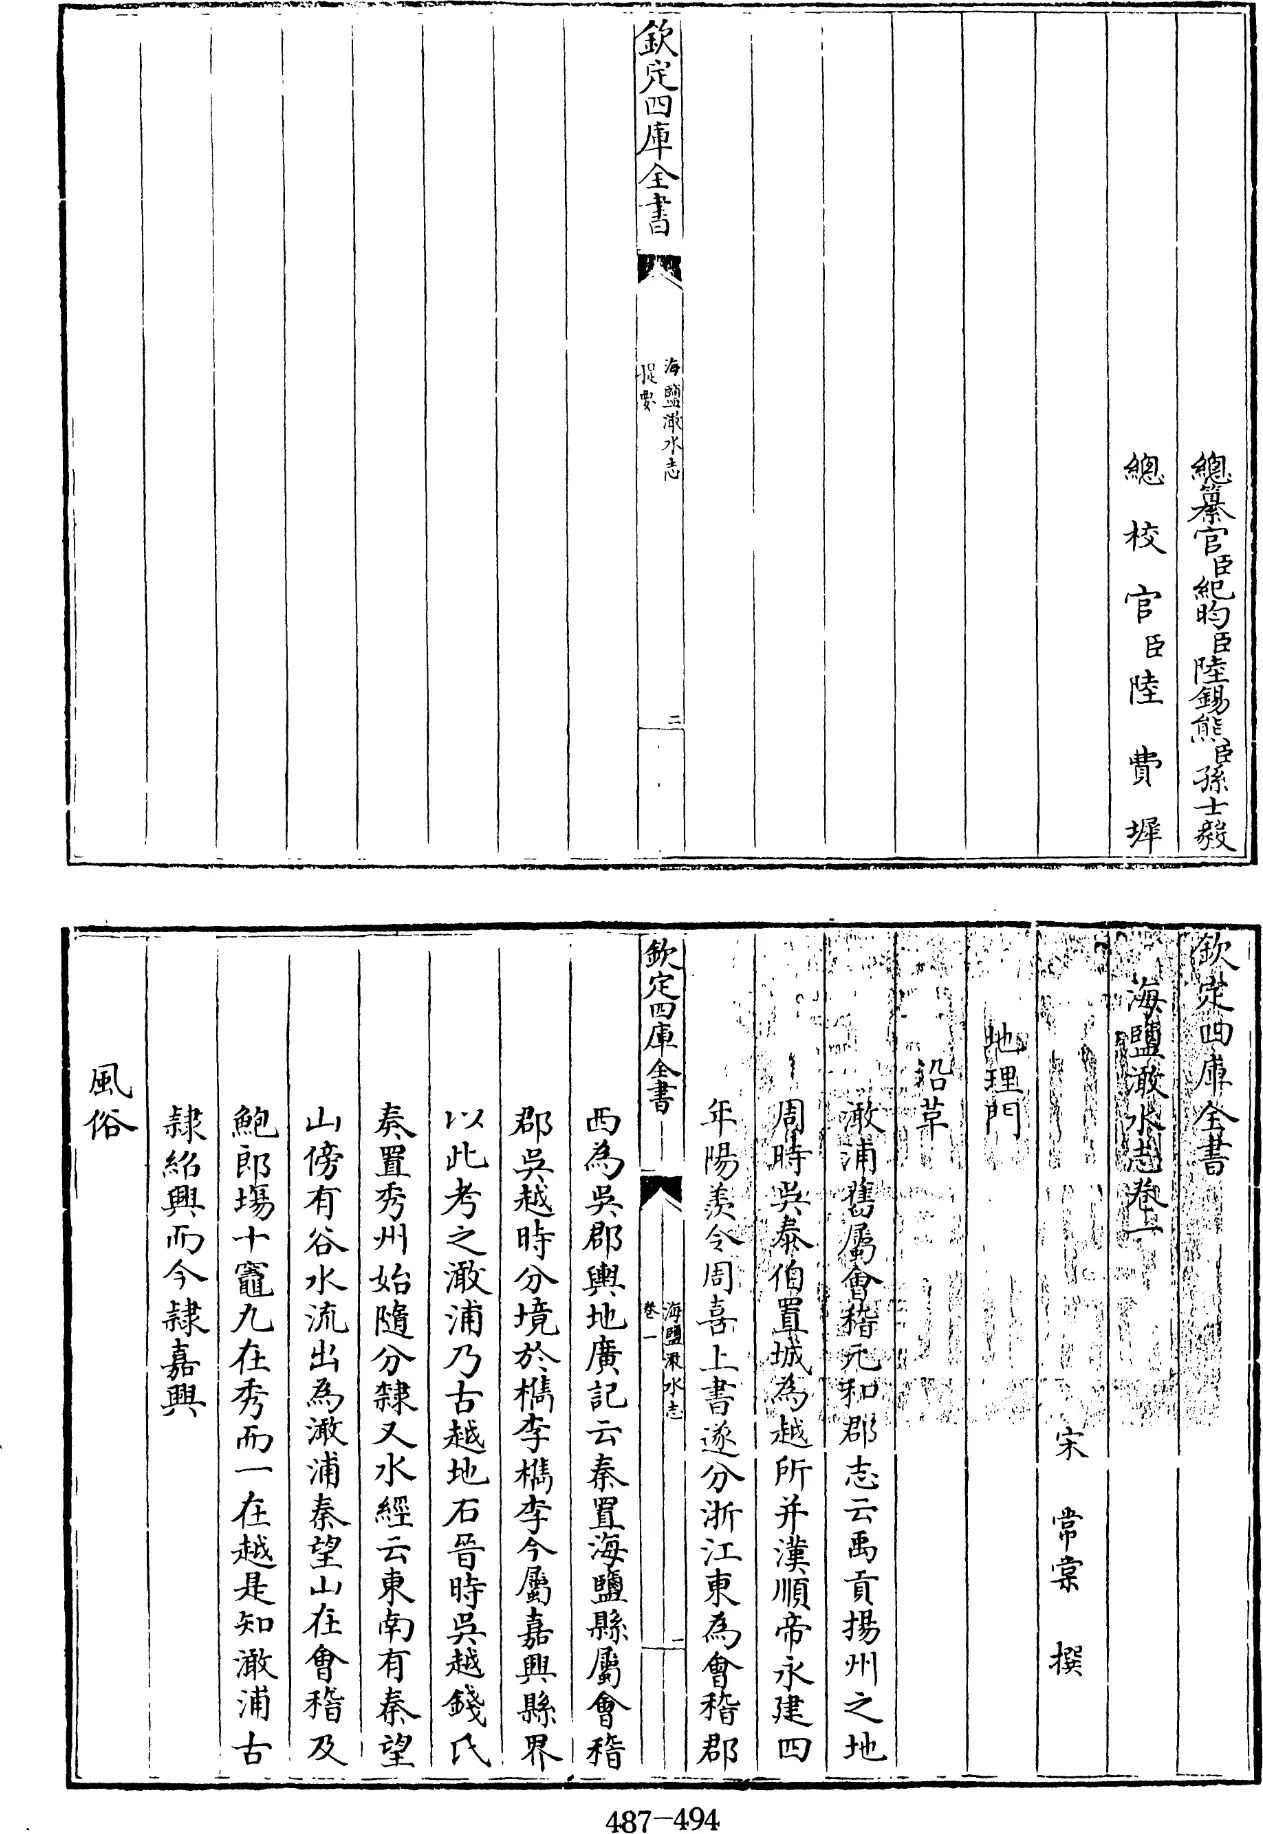 總纂官臣紀昀臣陸錫熊臣孫士毅
總校官臣陸費墀
欽定四庫全書
海鹽澉水志
提要
二
欽定四庫全書
海鹽澉水志卷一
宋 常棠 撰
地理門
沿革
澉浦舊屬會稽元和郡志云禹貢揚州之地
周時吳泰伯置城為越所并漢順帝永建四
年陽羨令周喜上書遂分浙江東為會稽郡
欽定四庫全書
海鹽澉水志
卷一
一
西為吳郡輿地廣記云秦置海鹽縣屬會稽
郡吳越時分境於檇李檇李今屬嘉興縣界
以此考之澉浦乃古越地石晉時吳越錢氏
奏置秀州始隨分隸又水經云東南有秦望
山傍有谷水流出為澉浦秦望山在會稽及
鮑郎塲十竈九在秀而一在越是知澉浦古
隸紹興而今隸嘉興
風俗
487-494